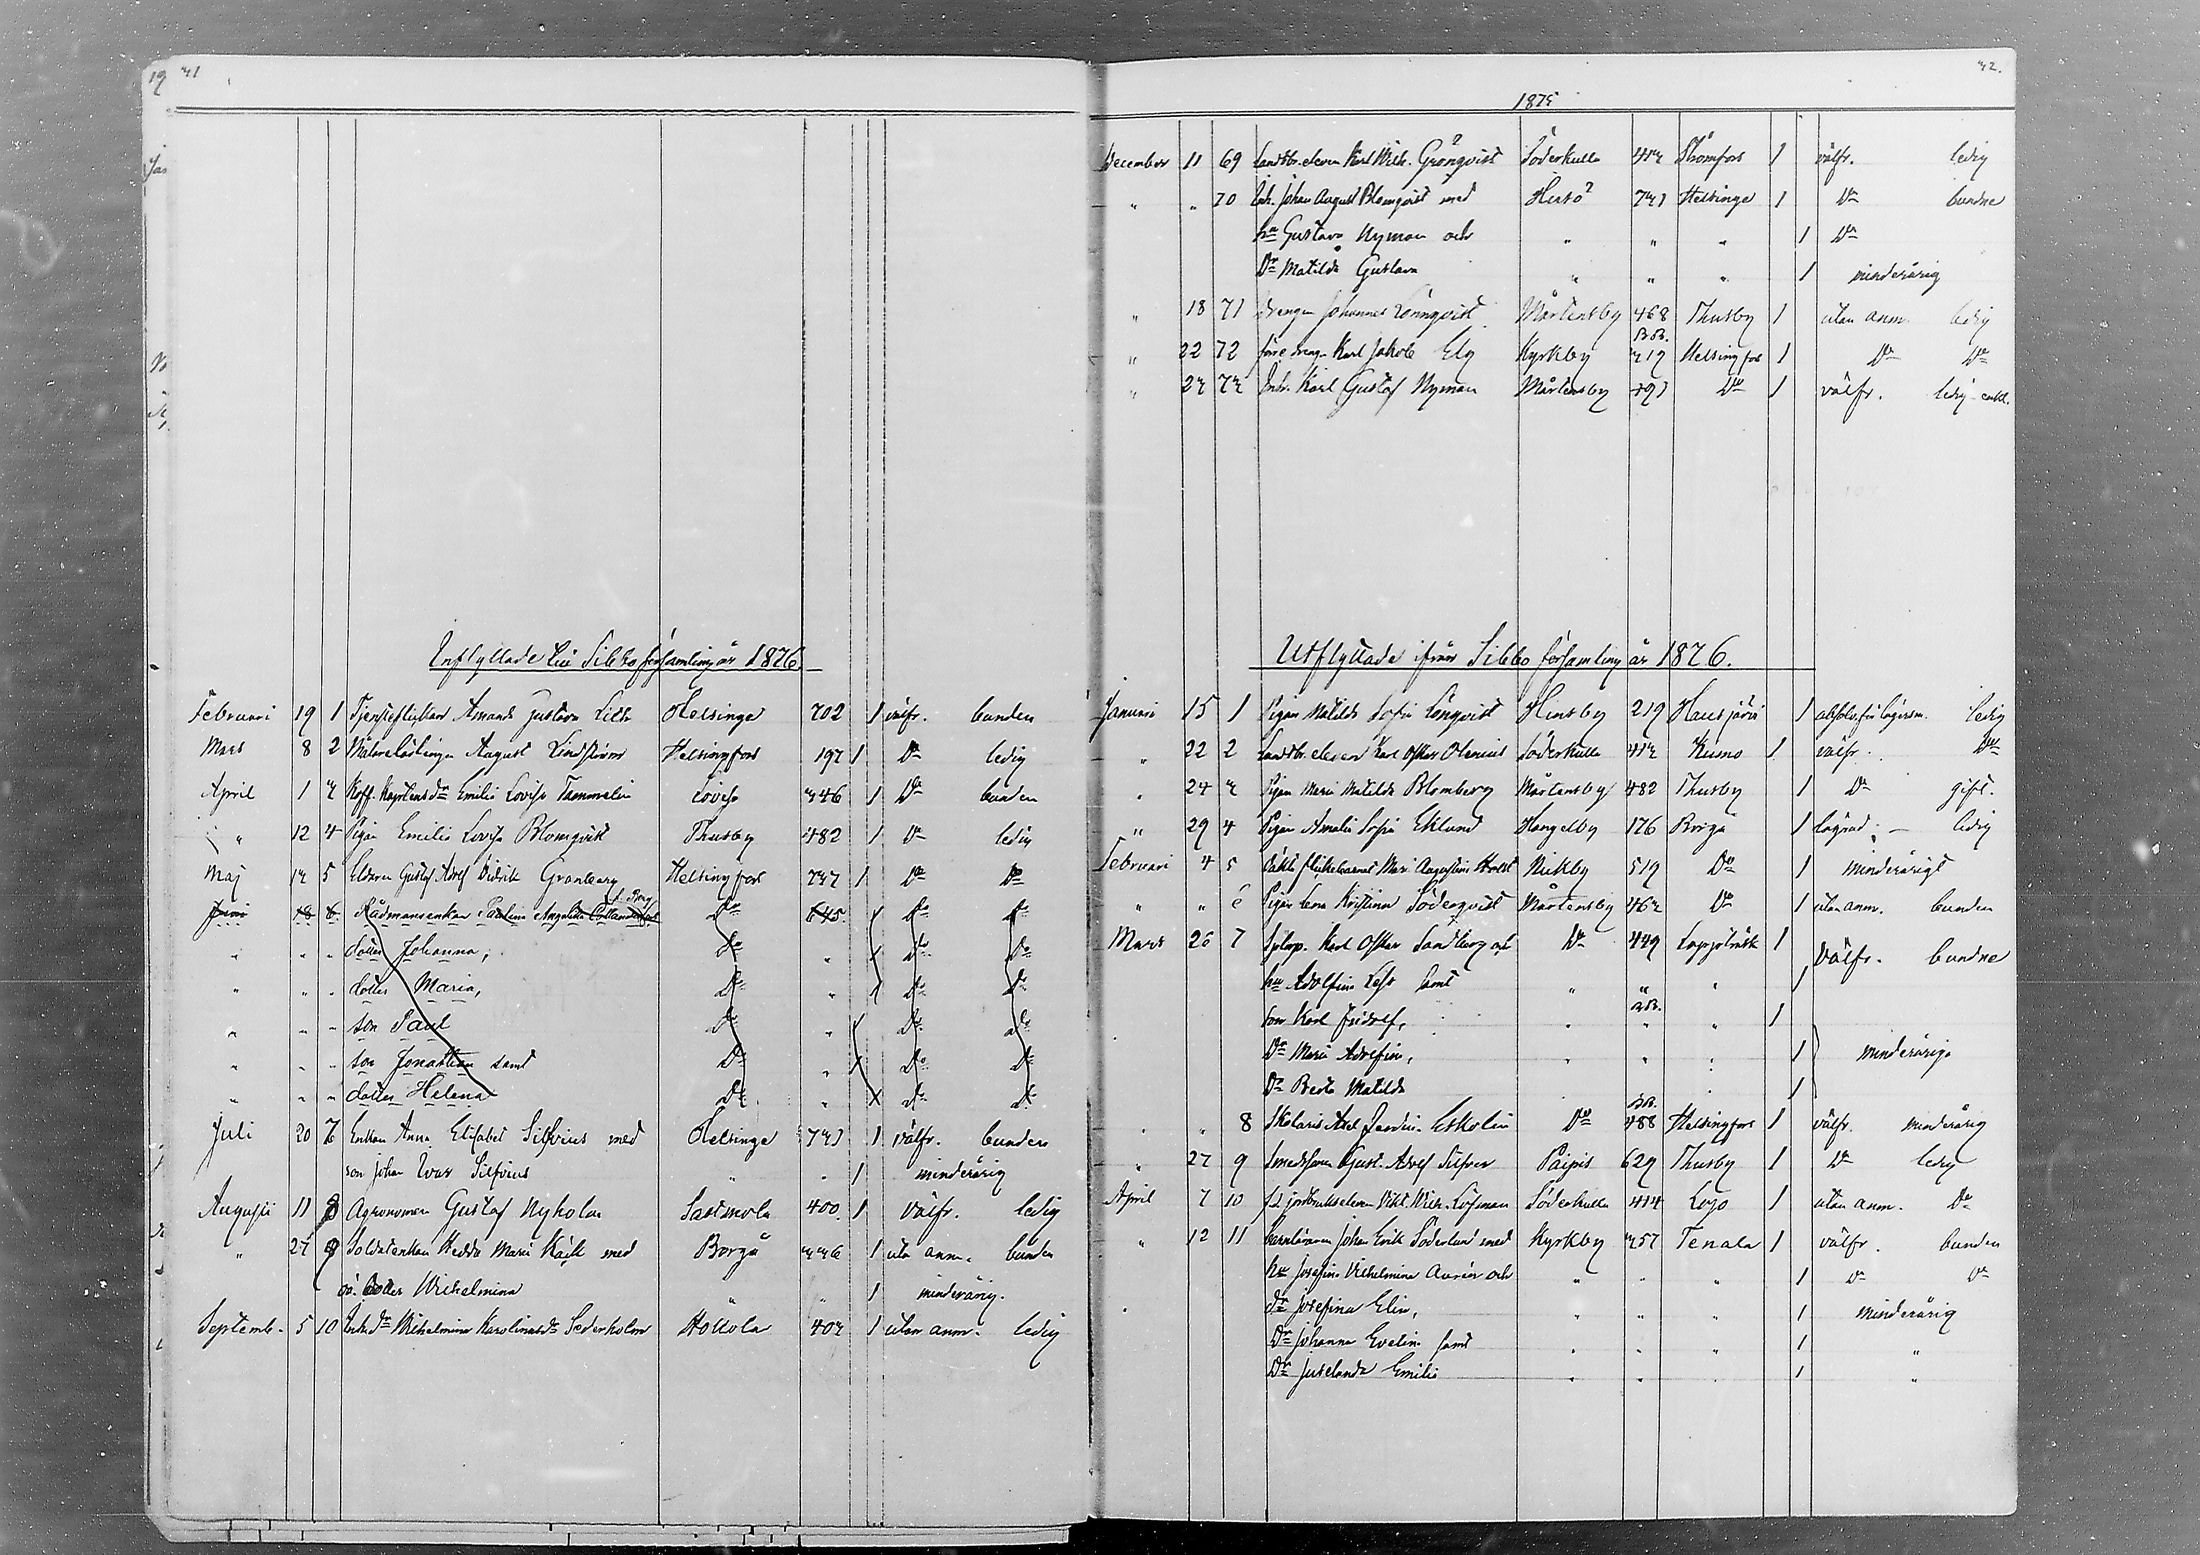 41
Inflyttade till Sibbo församling år 1876.
Februari 19 1 Tjensteflickan Amanda Gustava Lilth Helsinge 702 1 välfr. bunden
Mars 8 2 Målarelärlingen August Lindström Helsingfors 197 1 Do ledig
April 1 3 Koff. Kaptens dr Emilia Lovisa Tammelin Lovisa 346 1 Do bunden
" 12 4 Pigan Emilia Lovisa Blomqvist Thusby 482 1 Do ledig
Maj 13 5 Eldaren Gustaf Adolf Didrik Granberg Helsingfors 1 Do Do
Juni 18 6 Rådmansenkan Paulina Do 645 1 Do Do
" " " dotter Johanna, Do " 1 Do Do
" " " dotter Maria, Do " 1 Do Do
" " " son Paul Do " 1 Do Do
" " " son Jonathan samt Do " 1 Do Do
" " " dotter Helena Do " 1 Do Do
Juli 20 7 Enkan Anna Elisabet Silfvius med Helsinge 1 välfr. bunden
son Johan Ivar Silfvius " " 1 minderårig
Augusti 11 8 Agronomen Gustaf Nyholm Sastmola 400 1 välfr. ledig
" 9 Soldatenkan Hedda Maria med Borgå 336 1 utan anm. bunden
dotter Wilhelmina " " 1 minderårig.
Septemb. 5 10 Wilhelmina Karolina Sederholm Hollola 403 1 utan anm. ledig
42.
1875
December 11 69 Landtbr. eleven Karl Wilh. Grönqvist Söderkulla 413 Strömfors 1 välfr. ledig
" " 70 Inh. Johan August Blomqvist med Hitsö? Helsinge 1 Do bundne
hu Gustava Nyman och " " " 1 Do
Dr Matilda Gustava " " " 1 minderårig
" 18 71 drengen Johannes Lönnqvist Mårtensby 468 Thusby 1 utan anm. ledig
B.B.
" 22 72 förre dreng. Karl Jakob Elg Kyrkby 319 Helsingfors 1 Do Do
" 23 73 Inh. Karl Gustaf Nyman Mårtensby Do 1 välfr. ledig enkl.
Utflyttade ifrån Sibbo församling år 1876.
Januari 15 1 Pigan Matilda Sofia Lönqvist Hinsby 219 Hausjärvi 1 absolv. för lägersm. ledig
" 22 2 Landtbr. eleven Karl Oskar Olenius Söderkulla 413 Kumo 1 välfr. Do
" 24 3 Pigan Maria Matilda Blomberg Mårtensby 482 Thusby 1 Do gift.
" 29 4 Pigan Amalia Sofia Eklund Hangelby 176 Borgå 1 lägrad. — ledig
Februari 4 5 flickebarnet Maria Augustina Nickby 519 Do 1 minderårigt
" " 6 Pigan Lena Kristina Söderqvist Mårtensby 463 Do 1 utan anm. bunden
Mars 26 7 Karl Oskar Sandberg och Do 449 Lappträsk 1 välfr. bundne
hu Adolfina samt " " " 1
B.B.
son Karl Fridolf, " " " 1
Dr Maria Adolfina, " " " 1 minderåriga
Dr Berta Matilda " 1
B.B.
" " 8 Skolaris Axel Ferdin. Eskolin Do 488 Helsingfors 1 välfr. minderårig
" 27 9 Smedssonen Gust. Adolf Silfver Paipis 629 Thusby 1 Do ledig
April 7 10 jordbrukseleven Vikt. Wilh. Löfman Söderkulla 414 Lojo 1 utan anm. Do
" 12 11 Johan Erik Söderlund med Kyrkby 357 Tenala 1 välfr. bunden
hu Josefina Vilhelmina Aurén och " " " 1 Do Do
dr Josefina Elin, " " " 1 minderårig
Dr Johanna Evelina samt " " " 1 "
Dr Emilia " " " 1 "